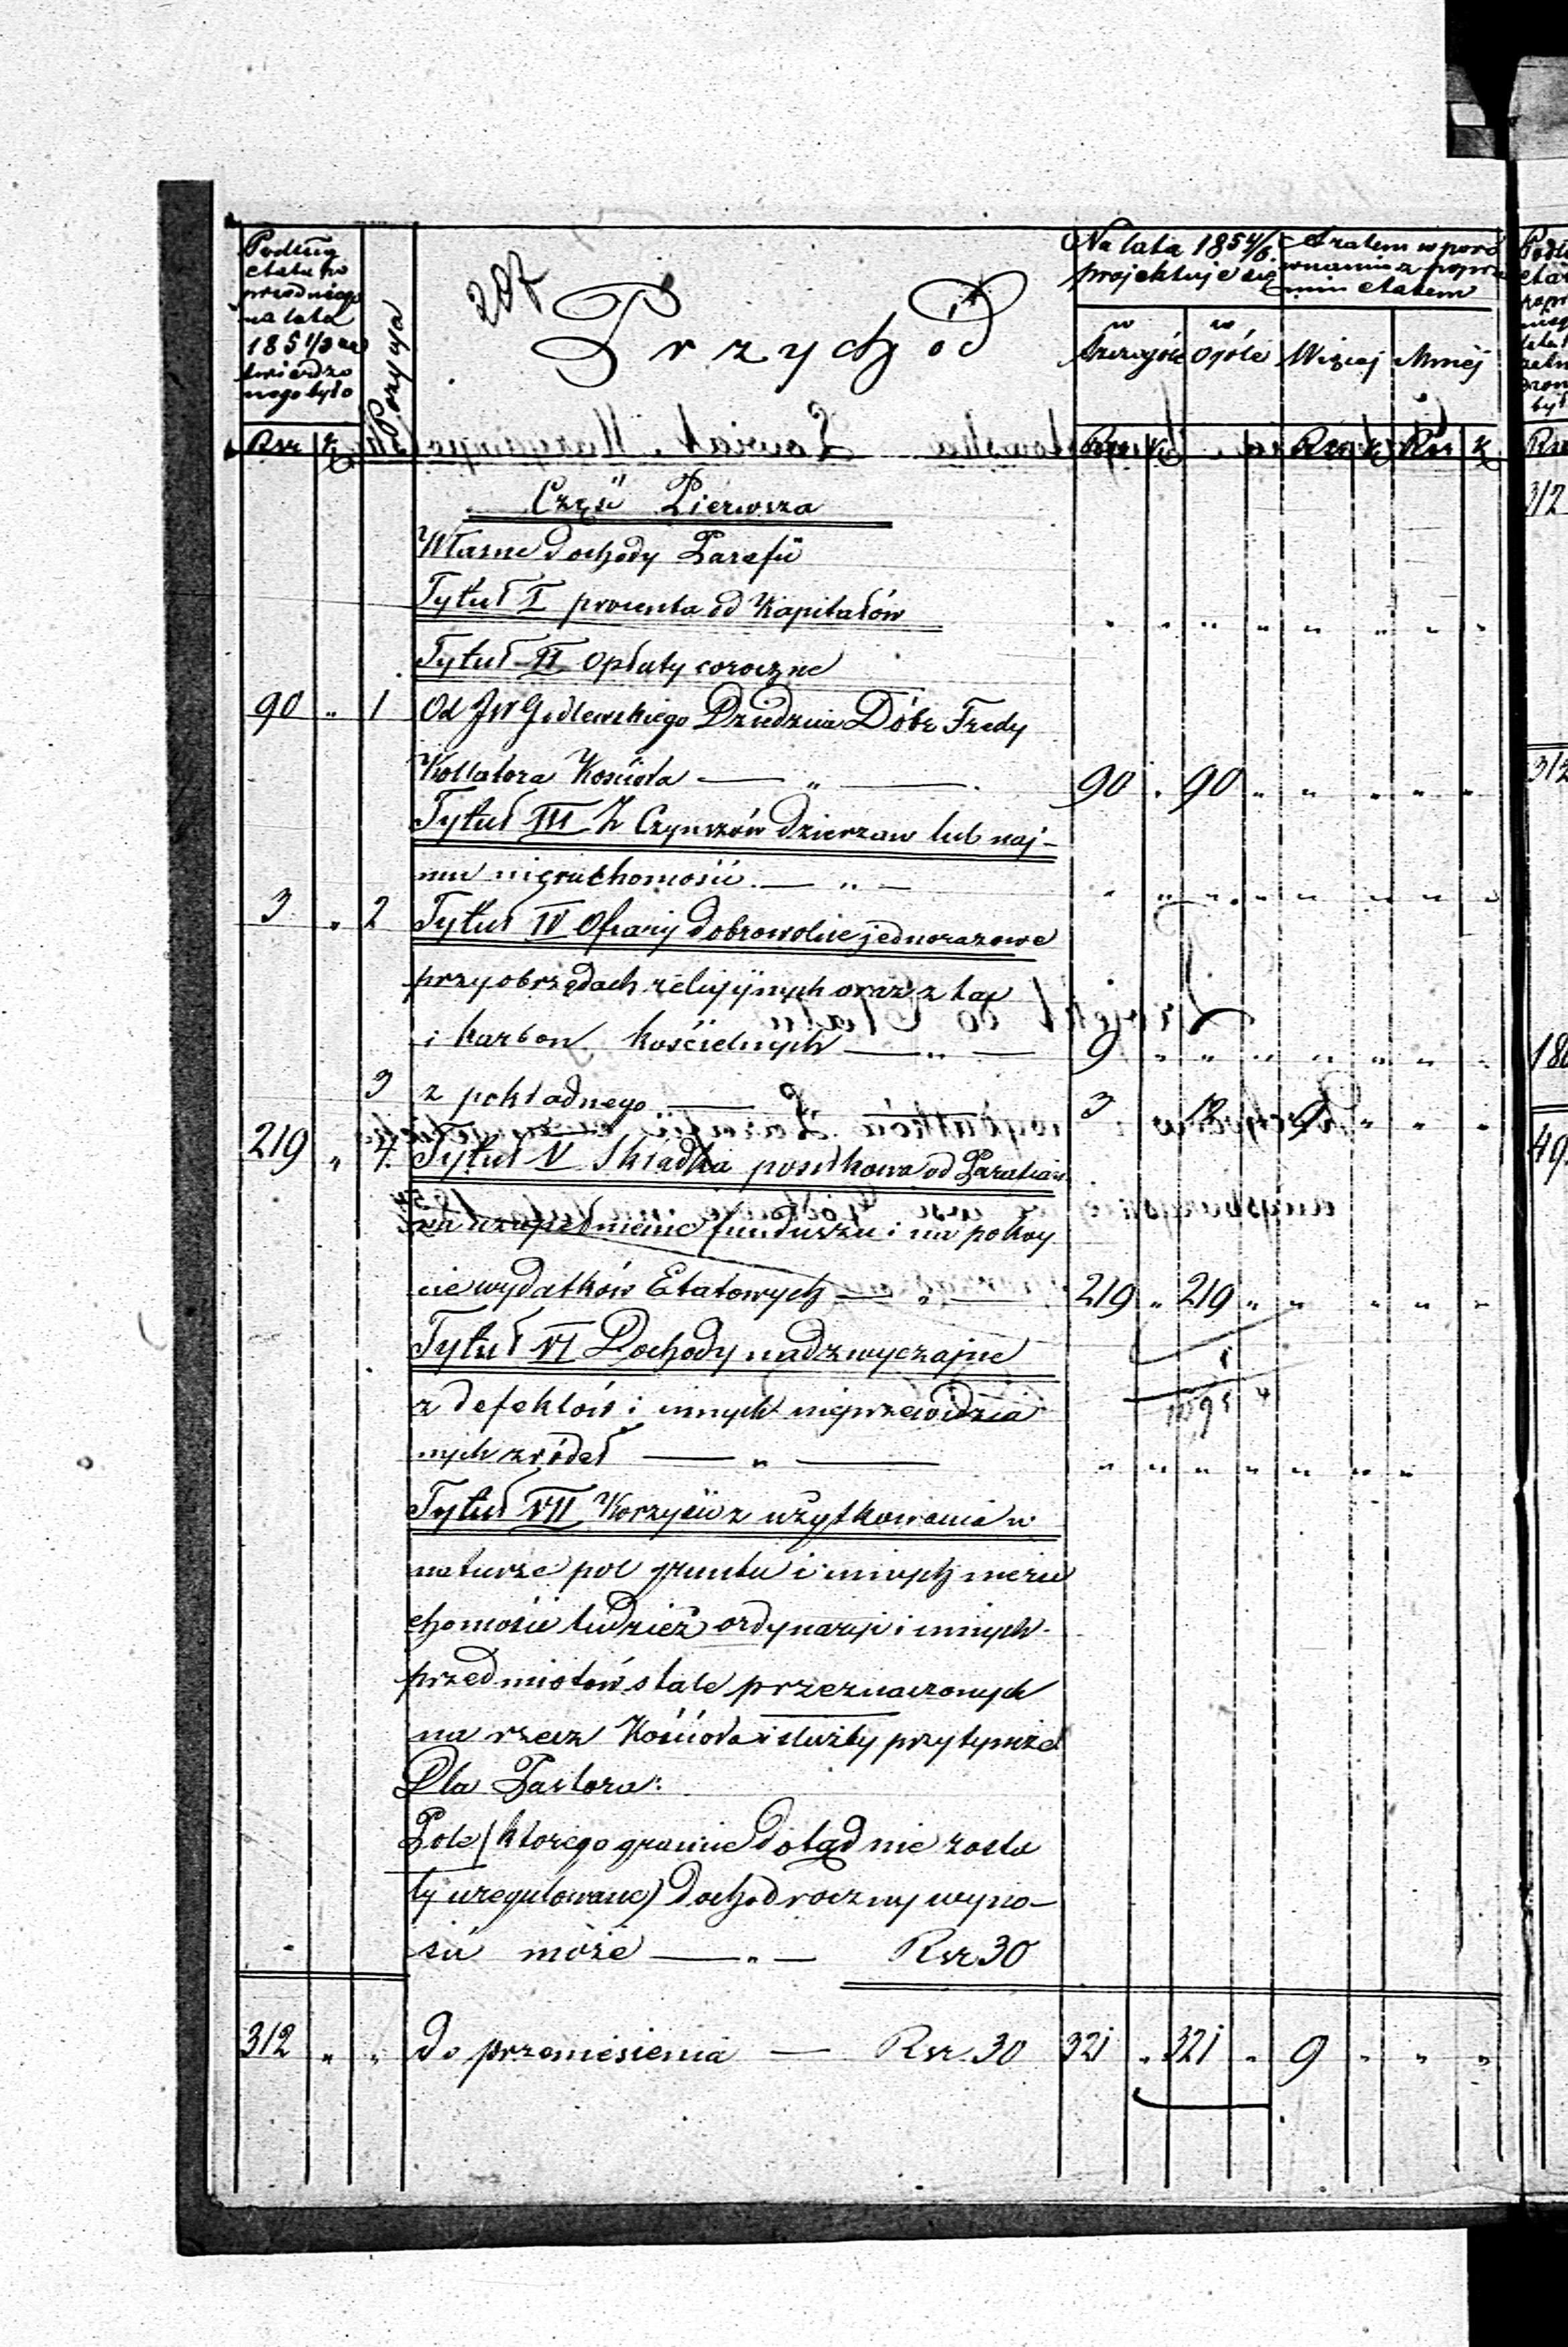 Podług
etatu po
przedniego
na lata
185 1/3 za
twierdzo
nego było
Pozycya
207
Przychod
Na lata 1854/6.
projektuje się
A zatem w poró
wnaniu z poprze
nim etatem
w
szczególe
w
ogóle
Więcej
Mniéj
Rsr
k
Rsr
k
Rsr
k
Rsr
k
Część Pierwsza
Własne dochody Parafii
Tytuł I procenta od Kapitałów
Tytuł II Opłaty coroczne
90 " 1 Od JW Godlewskiego Dziedzica Dóbr Fredy
Kollatora Kościoła — " — 90 " 90 " " " " "
Tytuł III Z Czynszów dzierzaw lub naj-
mu nieruchomości — " —
3 " 2 Tytuł IV Ofiary dobrowolne jednorazowe
przy obrzędach religijnych oraz z tac
i karbon kościelnych — " — 9 " " " " " " "
3 z pokładnego — 3 " 12 " 9 " " "
219 " 4. Tytuł V Składka posiłkowa od Parafian
na uzupełnienie funduszu i na pokry
cie wydatków Etatowych — " — 219 " 219 " " " " "
Tytuł VI Dochody nadzwyczajne
z defektów i innych nieprzewidzia
nych zródeł — " —
Tytuł VII Korzyści z użytkowania w
naturze pol gruntu i innych nieru
chomości tudzież ordynaryi i innych
przedmiotów stale przeznaczonych
na rzecz Kościoła i służby przy tymże
Dla Pastora:
Pole (ktorego granice dotąd nie zosta
ły uregulowane) dochod roczny wyno-
sić może — " — Rsr 30
312 " " do przeniesienia — Rsr. 30 321 " 321 " 9 " " "